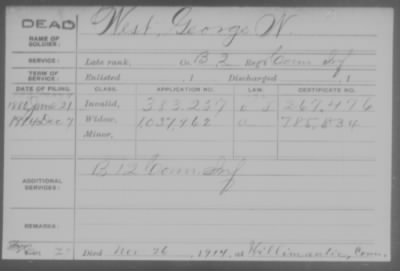 DEAD
NAME OF SOLDIER:
West, George W.
SERVICE:
Late rank, Co. B, 2 Reg't Conn Inf
TERM OF SERVICE:
Enlisted , 1 Discharged , 1
DATE OF FILING. CLASS. APPLICATION NO. LAW. CERTIFICATE NO.
June 21 Invalid, 383,257 267,476
1914 Dec 7 Widow, 1037,462 785,834
Minor,
ADDITIONAL SERVICES:
B 12 Conn Inf
REMARKS:
Died Nov 26, 1914, at Willimantic, Conn.